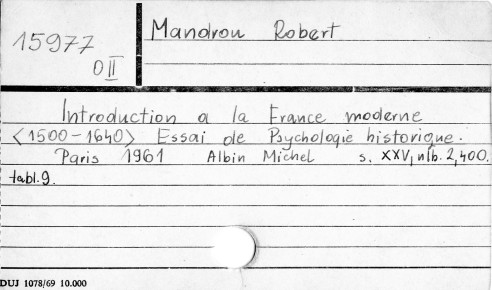 15977
O II
Mandrou Robert
Introduction a la France moderne
<1500-1640> Essai de Psychologie historique.
Paris 1961 Albin Michel s. XXV, nlb. 2, 400.
tabl. 9.
DUJ 1078/69 10.000